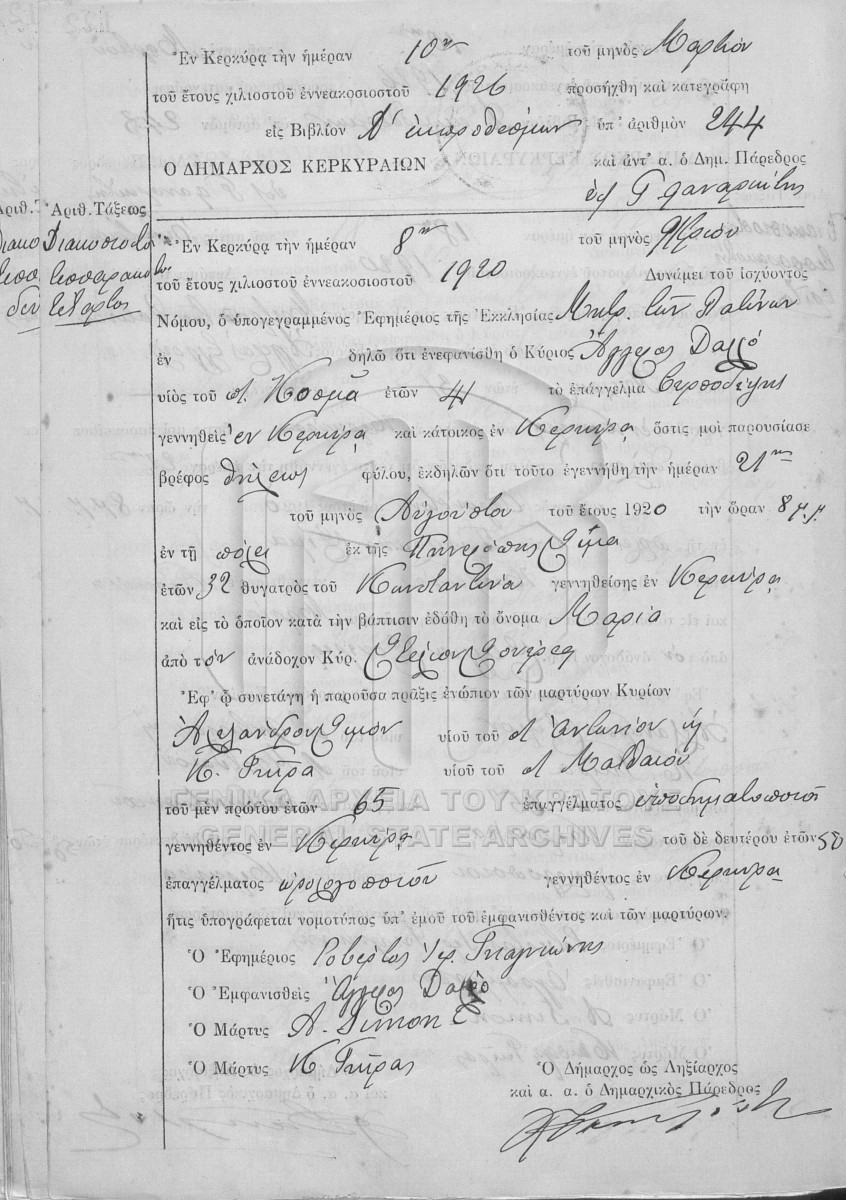 Ἐν Κερκύρᾳ τὴν ἡμέραν 10ην τοῦ μηνὸς Μαρτίου
τοῦ ἔτους χιλιοστοῦ ἐννεακοσιοστοῦ 1926 προσήχθη καὶ κατεγράφη
εἰς Βιβλίον Α΄ ἐκπροθέσμων ὑπ' ἀριθμὸν 244
Ο ΔΗΜΑΡΧΟΣ ΚΕΡΚΥΡΑΙΩΝ καὶ ἀντ' α. ὁ Δημ. Πάρεδρος
Ἀριθ. Τάξεως
Διακοσιοστὸν
τεσσαρακοστὸν
τέταρτον
Ἐν Κερκύρᾳ τὴν ἡμέραν 8ην τοῦ μηνὸς 9βρίου
τοῦ ἔτους χιλιοστοῦ ἐννεακοσιοστοῦ 1920 Δυνάμει τοῦ ἰσχύοντος
Νόμου, ὁ ὑπογεγραμμένος Ἐφημέριος τῆς Ἐκκλησίας Μητρ. τῶν Λατίνων
ἐν δηλῶ ὅτι ἐνεφανίσθη ὁ Κύριος Ἄγγελος
υἱὸς τοῦ π. Κοσμᾶ ἐτῶν 41 τὸ ἐπάγγελμα
γεννηθεὶς ἐν Κερκύρᾳ καὶ κάτοικος ἐν Κερκύρᾳ ὅστις μοὶ παρουσίασε
βρέφος θήλεως φύλου, ἐκδηλῶν ὅτι τοῦτο ἐγεννήθη τὴν ἡμέραν 21ην
τοῦ μηνὸς Αὐγούστου τοῦ ἔτους 1920 τὴν ὥραν 8 μ.μ.
ἐν τῇ πόλει ἐκ τῆς Πηνελόπης
ἐτῶν 32 θυγατρὸς τοῦ Κωνσταντίνου γεννηθείσης ἐν Κερκύρᾳ
καὶ εἰς τὸ ὁποῖον κατὰ τὴν βάπτισιν ἐδόθη τὸ ὄνομα Μαρία
ἀπὸ τὸν ἀνάδοχον Κύρ.
Ἐφ' ᾧ συνετάγη ἡ παροῦσα πρᾶξις ἐνώπιον τῶν μαρτύρων Κυρίων
Ἀλεξάνδρου Σιμὸν υἱοῦ τοῦ π. Ἀντωνίου
Κ. Γκίρα υἱοῦ τοῦ π. Ματθαίου
ΓΕΝΙΚΑ ΑΡΧΕΙΑ ΤΟΥ ΚΡΑΤΟΥΣ
τοῦ μὲν πρώτου ἐτῶν 65 ἐπαγγέλματος ὑποδηματοποιοῦ
GENERAL STATE ARCHIVES
γεννηθέντος ἐν Κερκύρᾳ τοῦ δὲ δευτέρου ἐτῶν
ἐπαγγέλματος ὡρολογοποιοῦ γεννηθέντος ἐν Κερκύρᾳ
ἥτις ὑπογράφεται νομοτύπως ὑπ' ἐμοῦ τοῦ ἐμφανισθέντος καὶ τῶν μαρτύρων.
Ὁ Ἐφημέριος Ροβέρτος
Ὁ Ἐμφανισθεὶς Ἄγγελος
Ὁ Μάρτυς A. Simon
Ὁ Μάρτυς Κ Γκίρας
Ὁ Δήμαρχος ὡς Ληξίαρχος
καὶ α. α. ὁ Δημαρχικὸς Πάρεδρος